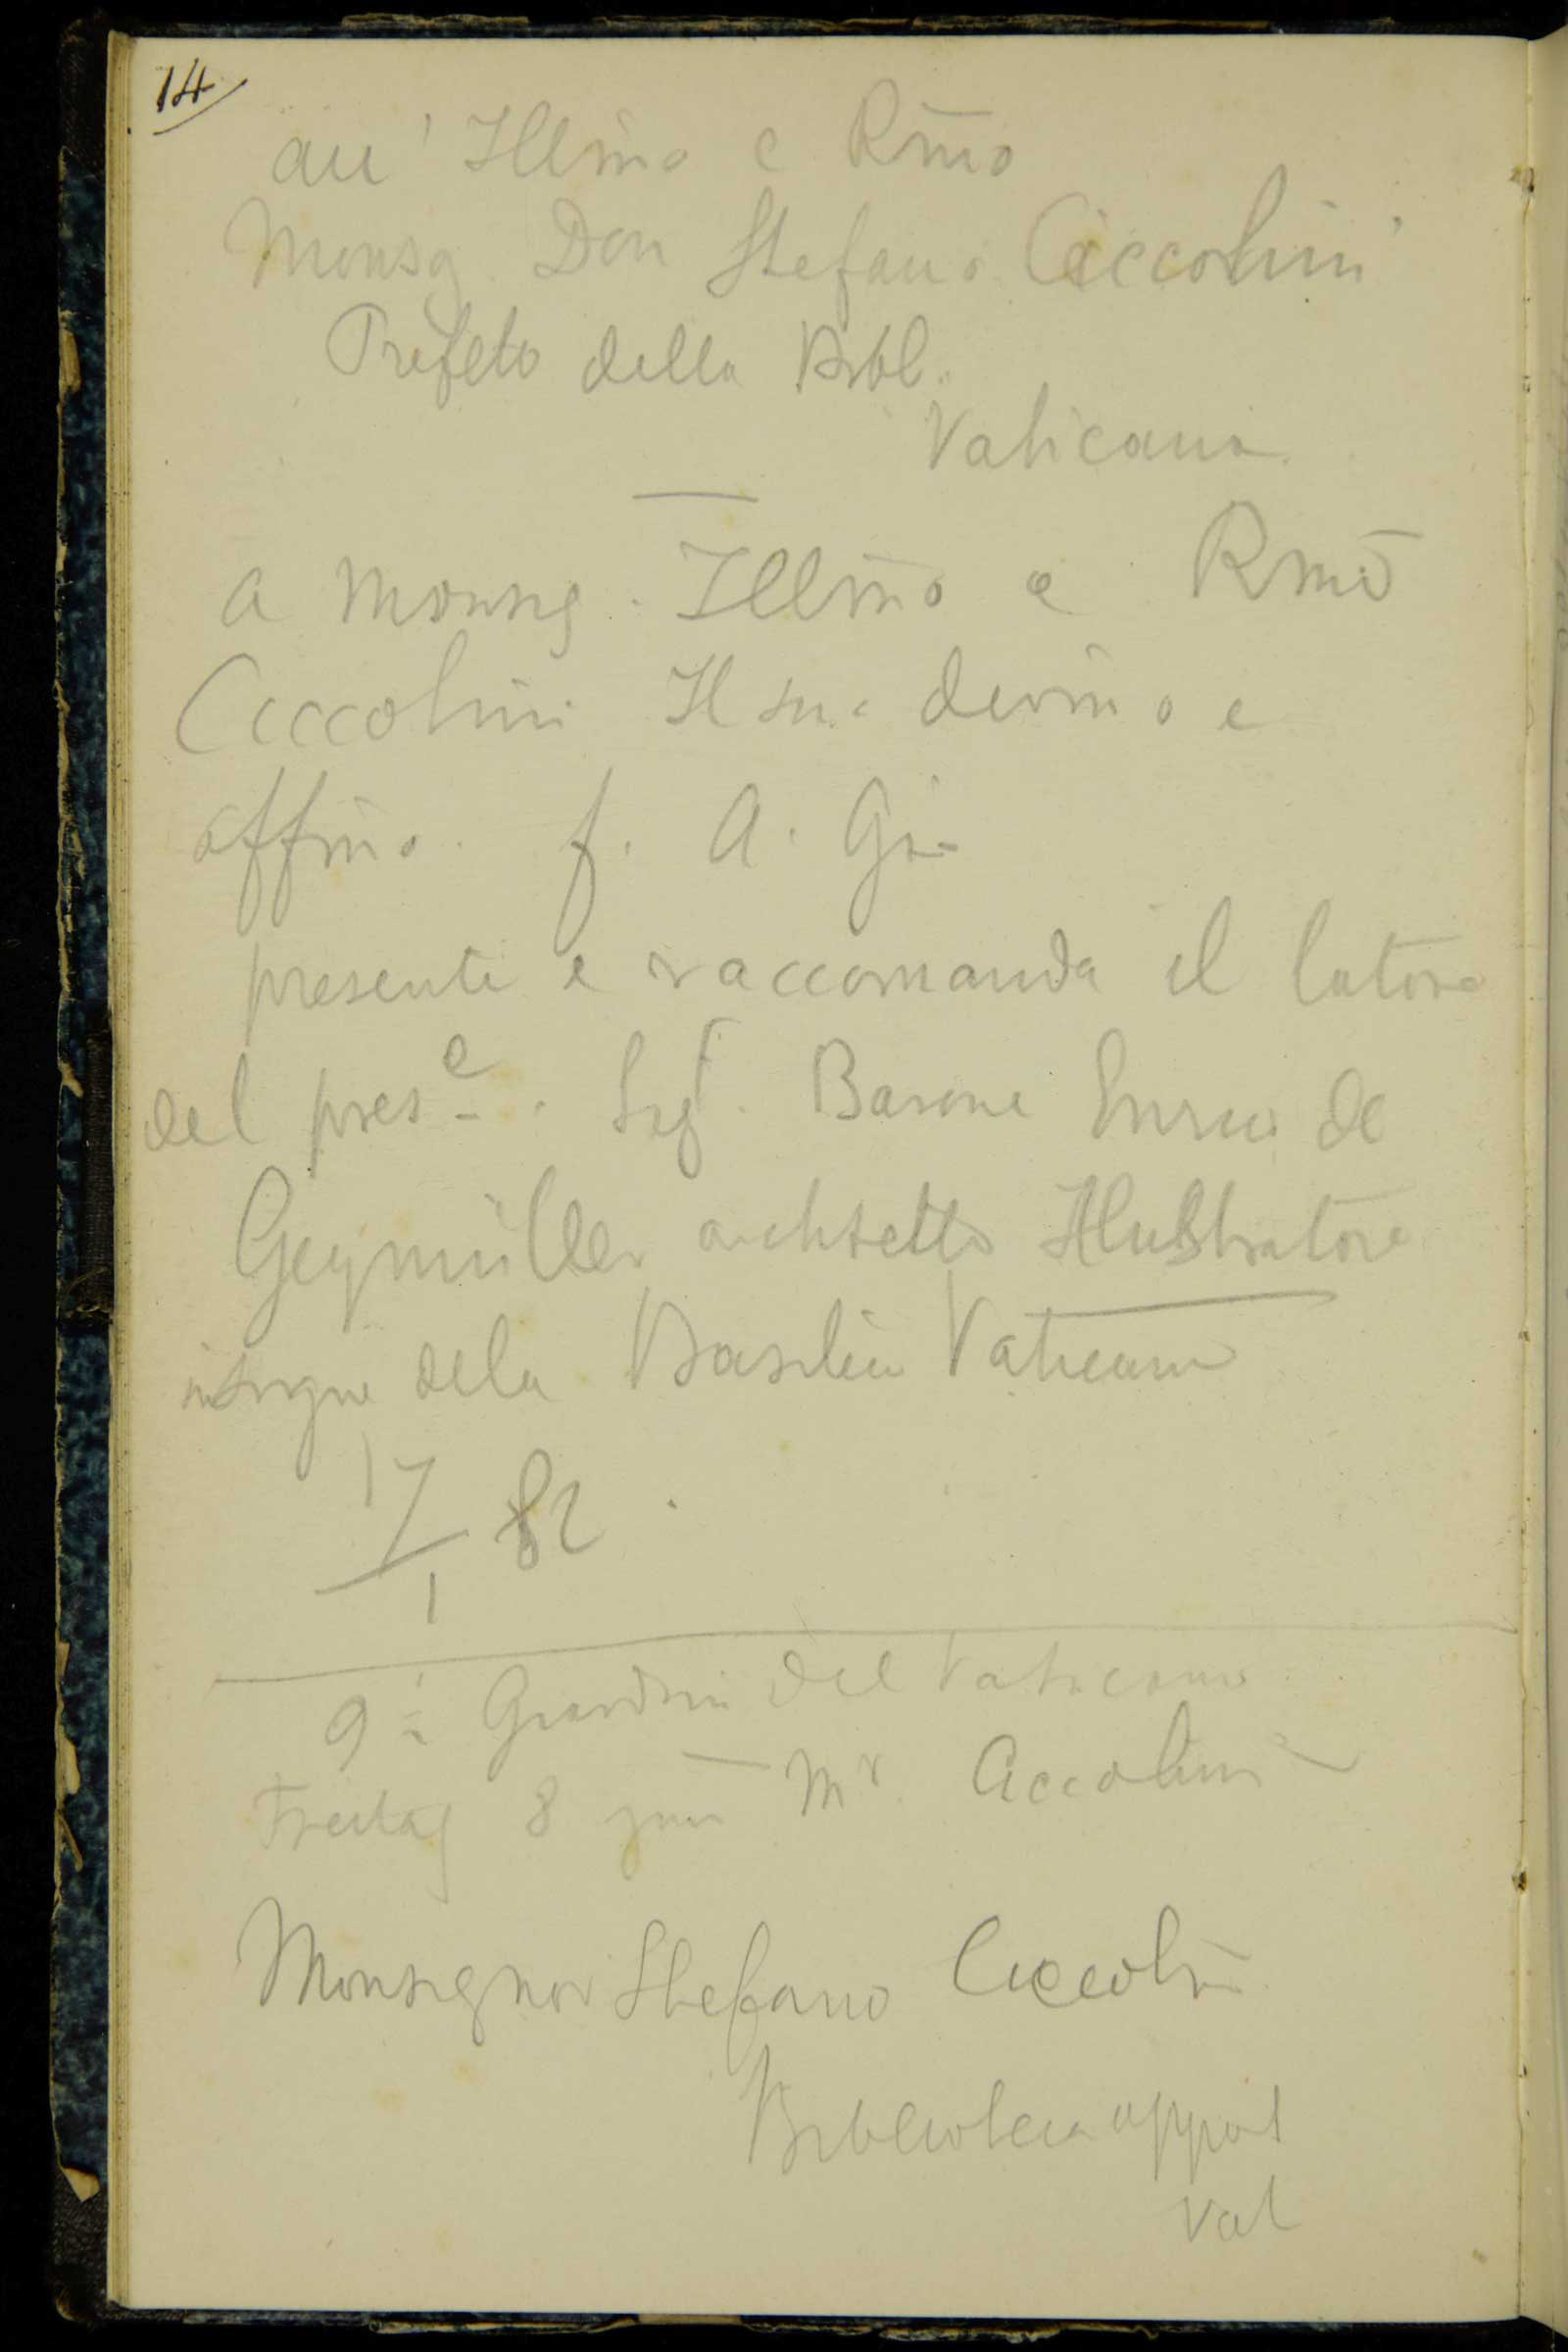 14
all' Illmo e Rmo
Monsg. Don Stefano Ciccolini
Prefeto della Bibl.
Vaticana
a Monsg. Illmo e Rmo
Ciccolini Il suo devmo e
affmo. f. A.
presenta e raccomanda il latore
del prese. Sigr. Barone Enrico de
Geymüller architetto Illustratore
insigne dela Basilica Vaticana
17/1 82
Giardini del Vaticano
Freitag 8 Mr Ciccolini
Monsignor Stefano Ciccolini
Biblioteca appost
Vat